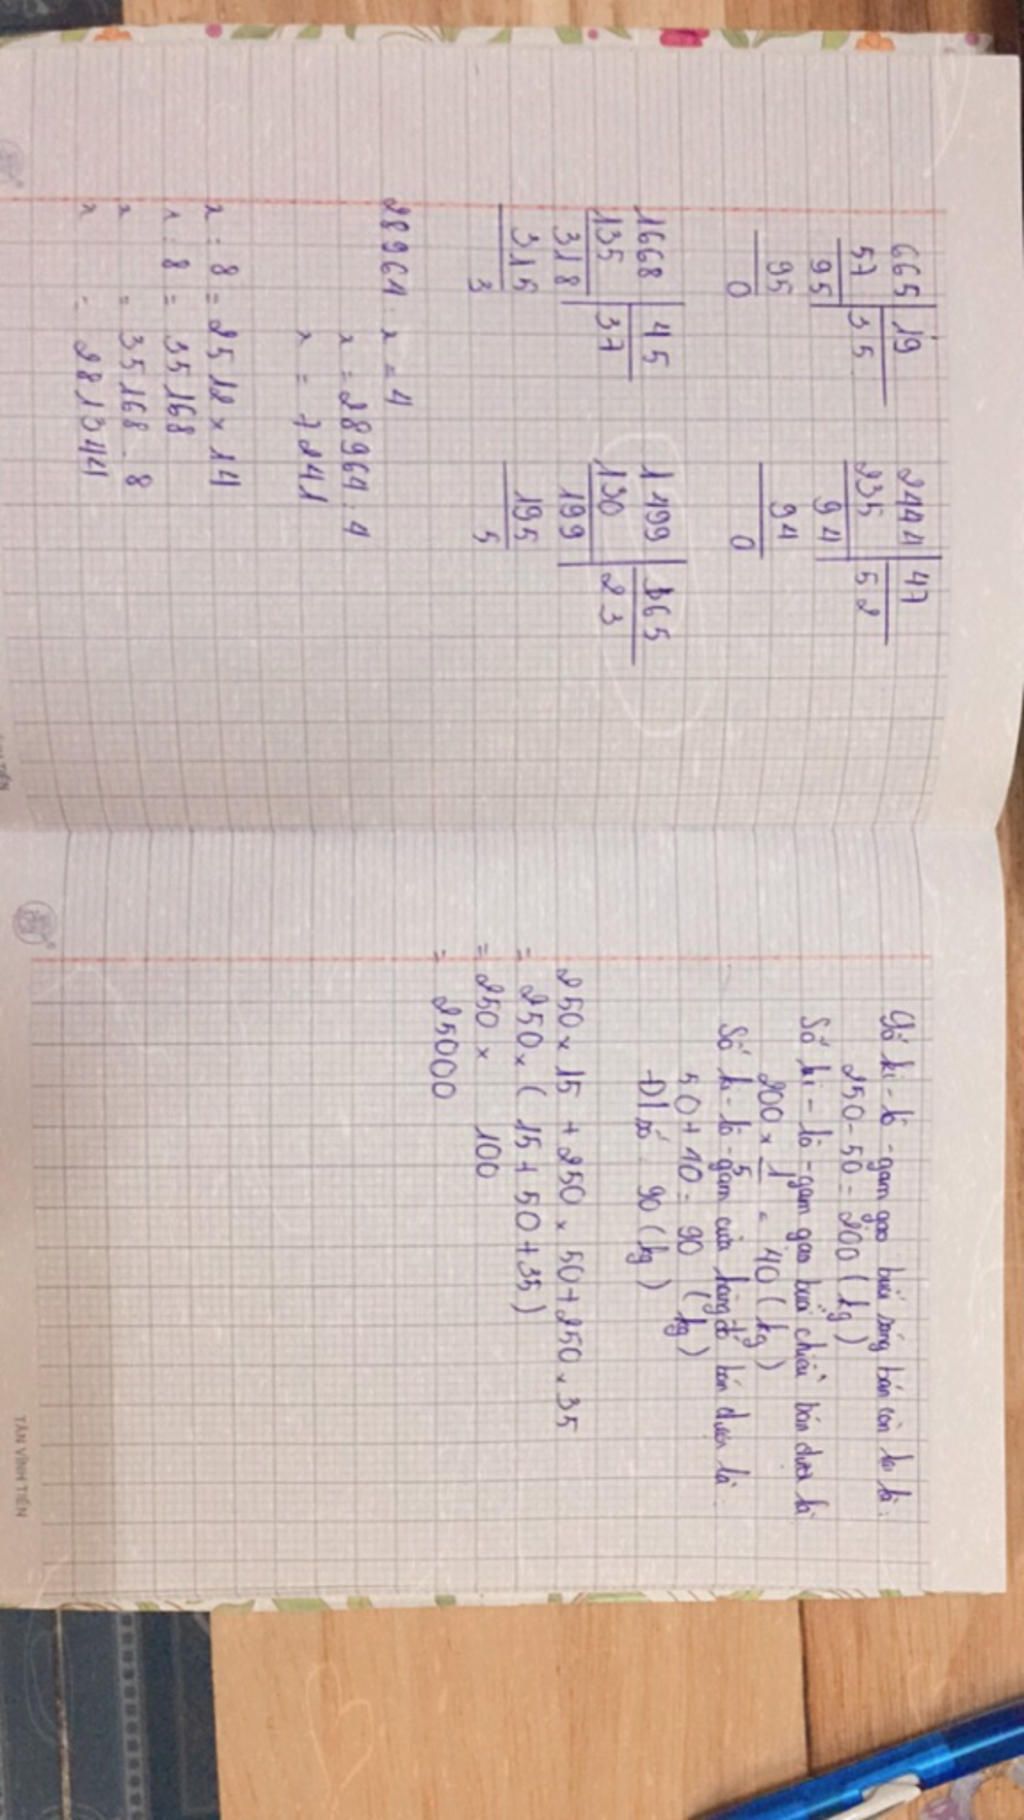 665 | 19
57 | 35
95
95
0
2444 | 47
235 | 52
94
94
0
1668 | 45
135 | 37
318
315
3
1499 | 65
130 | 23
199
195
5
28964 : x = 4
x = 28964 : 4
x = 7241
x : 8 = 2512 x 14
x : 8 = 35168
x = 35168 - 8
x = 281344
Số ki-lô-gam gạo buổi sáng bán còn lại là:
250-50 = 200 (kg)
Số ki-lô-gam gạo buổi chiều bán được là
200 x 1/5 = 40 (kg)
Số ki-lô-gam cửa hàng đó bán được là
50 + 40 = 90 (kg)
Đ/số : 90 (kg)
250 x 15 + 250 x 50 + 250 x 35
= 250 x ( 15 + 50 + 35 )
= 250 x 100
= 25000
TÂN VĨNH TIẾN